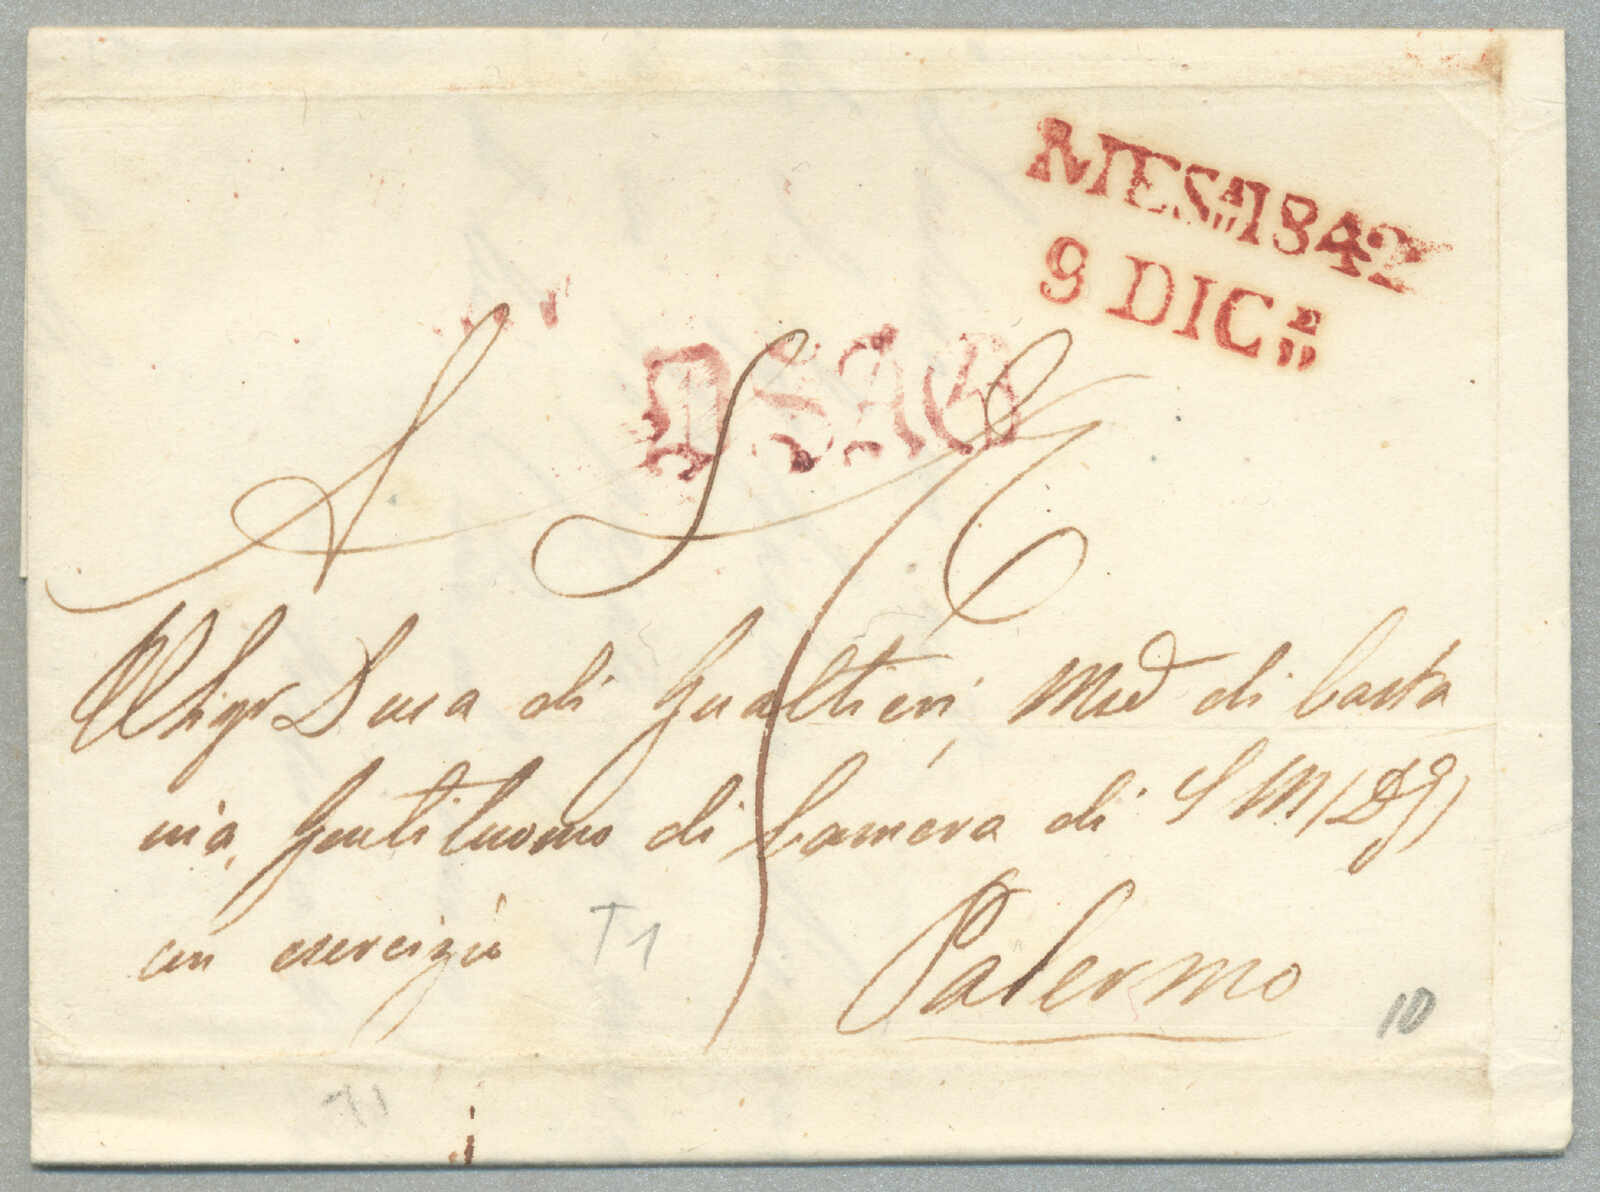 MES.A 1842
9 DIC.E
DSAG
A S E
Il Sigr Duca di Gualtieri, Med di Casta
nia, Gentiluomo di Camera di S M (D g)
in esercizio
Palermo
T1
10
T1